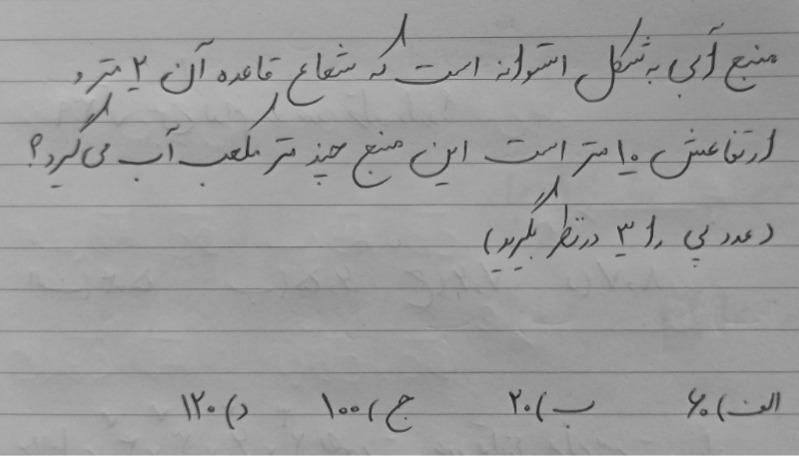 منبع آبی به شکل استوانه است که شعاع قاعده آن ۲ متر و
ارتفاعش ۱۰ متر است این منبع چند متر مکعب آب می گیرد؟
(عدد پی را ۳ در نظر بگیرید)
الف) ۶۰ ب) ۲۰ ج) ۱۰۰ د) ۱۲۰